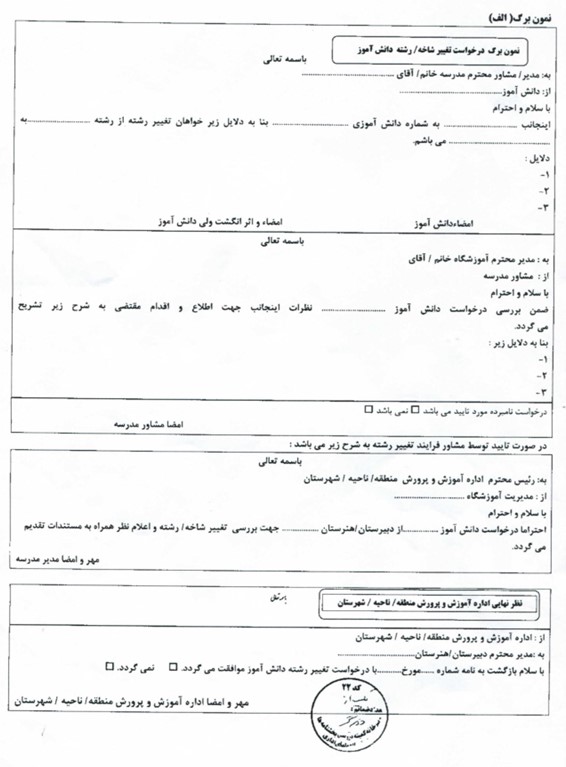 نمون برگ( الف)
نمون برگ درخواست تغییر شاخه/ رشته دانش آموز
باسمه تعالی
به: مدیر/ مشاور محترم مدرسه خانم/ آقای ................................
از: دانش آموز................................
با سلام و احترام
اینجانب ........................ به شماره دانش آموزی ........................ بنا به دلایل زیر خواهان تغییر رشته از رشته ....................به
................................ می باشم.
دلایل :
۱-
۲-
۳-
امضاءدانش آموز
امضاء و اثر انگشت ولی دانش آموز
باسمه تعالی
به : مدیر محترم آموزشگاه خانم / آقای
از : مشاور مدرسه
با سلام و احترام
ضمن بررسی درخواست دانش آموز .................... نظرات اینجانب جهت اطلاع و اقدام مقتضی به شرح زیر تشریح
می گردد.
بنا به دلایل زیر :
۱-
۲-
۳-
درخواست نامبرده مورد تایید می باشد ☐ نمی باشد ☐
امضا مشاور مدرسه
در صورت تایید توسط مشاور فرایند تغییر رشته به شرح زیر می باشد :
باسمه تعالی
به: رئیس محترم اداره آموزش و پرورش منطقه/ ناحیه / شهرستان
از : مدیریت آموزشگاه ........................
با سلام و احترام
احتراما درخواست دانش آموز ..............از دبیرستان/هنرستان .............. جهت بررسی تغییر شاخه/ رشته و اعلام نظر همراه به مستندات تقدیم
می گردد.
مهر و امضا مدیر مدرسه
باسمه تعالی
نظر نهایی اداره آموزش و پرورش منطقه/ ناحیه / شهرستان
از : اداره آموزش و پرورش منطقه/ ناحیه / شهرستان
به :مدیر محترم دبیرستان/هنرستان................................
با سلام بازگشت به نامه شماره ......مورخ..........با درخواست تغییر رشته دانش آموز موافقت می گردد. ☐ نمی گردد. ☐
مهر و امضا اداره آموزش و پرورش منطقه/ ناحیه / شهرستان
کد ۲۲